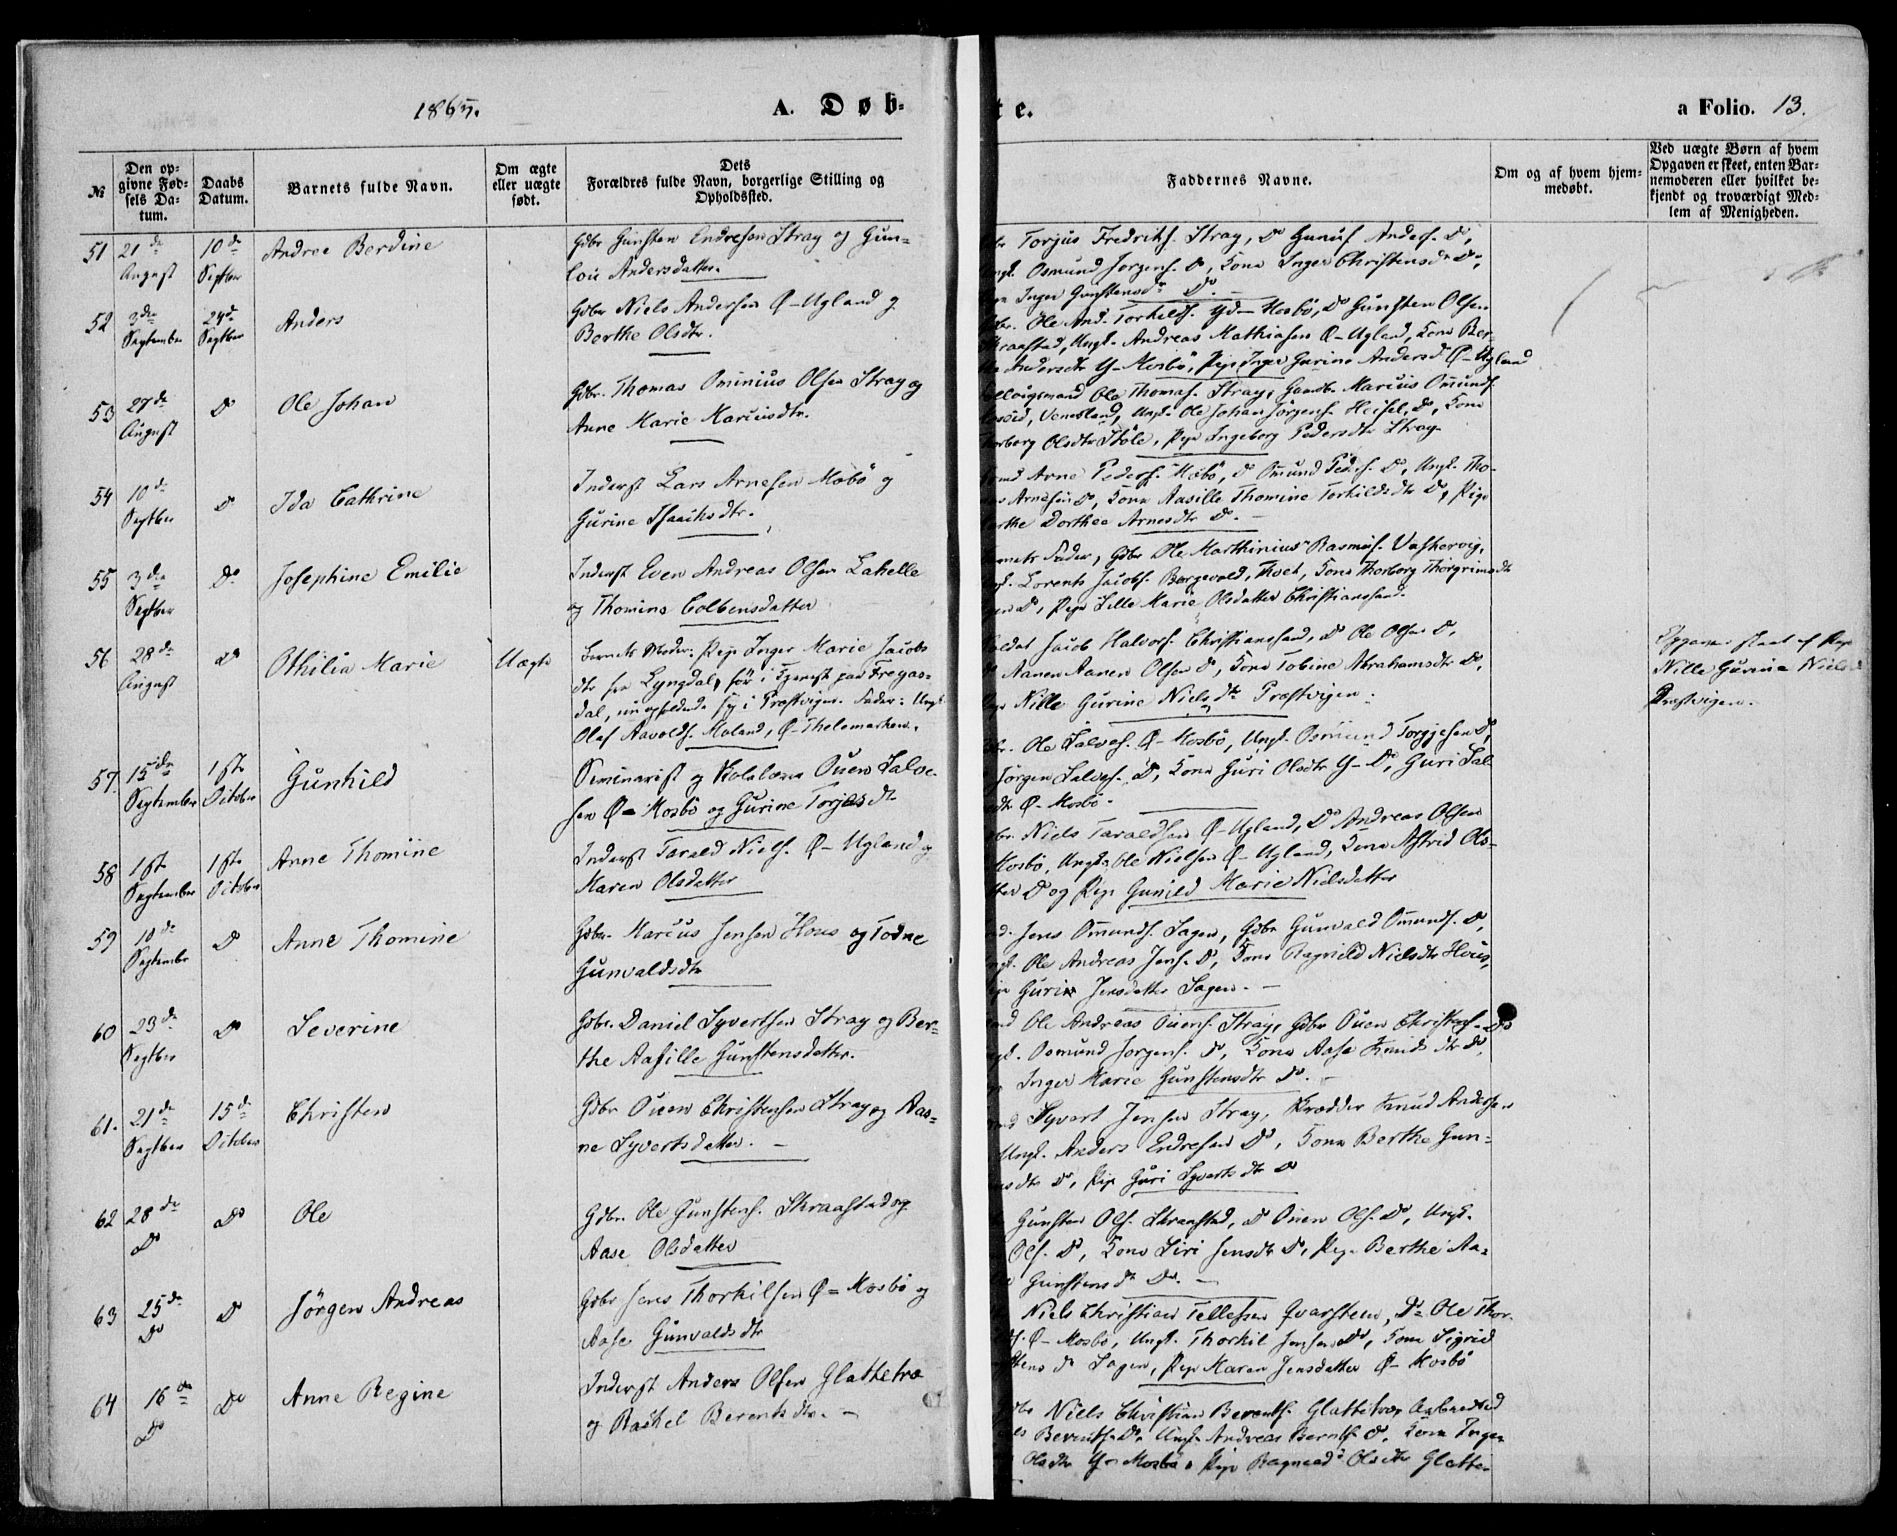 1865.
A. Døb-
te.
a Folio. 13.
№
Den op-
givne Fød-
sels Da-
tum.
Daabs
Datum.
Barnets fulde Navn.
Om ægte
eller uægte
født.
Dets
Forældres fulde Navn, borgerlige Stilling og
Opholdssted.
Faddernes Navne.
Om og af hvem hjem-
medøbt.
Ved uægte Børn af hvem
Opgaven er skeet, enten Bar-
nemoderen eller hvilket be-
kjendt og troværdigt Med-
lem af Menigheden.
51
21de
August
10de
Septber
Andrea Berdine
Gdbr Gunsten Endresen Stray og Gun-
lou Andersdatter.
Torjus Fredriks. Stray, Do Gunuf Anders. Do,
Osmund Jørgens. Do, Kona Inger Christensdr Do,
Inger Gunstensdr Do.
52
3die
September
24de
Septber
Anders
Gdbr Niels Andersen Ø-Ugland og
Berthe Olsdtr.
Ole And. Torkilds. Y- Mosbø, Do Gunsten Olsen
Kraastad, Ungk. Andreas Mathiasen Ø-Ugland, Kona Ber-
Andersdtr Y-Mosbø, Pige Inger Gurine Andersdr Ø-Ugland
53
27de
August
Do
Ole Johan
Gdbr. Thomas Ominius Olsen Stray og
Anne Marie Marcusdtr.
Ole Thomas. Stray, Gaardbr. Marcus Omunds.
Vennesland, Ungk. Ole Johan Jørgens. Heisel, Do, Kona
Olsdtr Støle, Pige Ingeborg Pedersdtr Stray
54
10de
Septber
Do
Ida Cathrine
Inderst Lars Arnesen Mosbø og
Gurine Isaaksdtr.
Arne Peders. Mosbø, Do Omund Peders. Do, Ungk. Tho-
Arnesen Do, Kona Aasille Thomine Torkildsdtr Do, Pige
Dorthea Arnesdtr Do.
55
3die
Septber
Do.
Josephine Emilie
Inderst Even Andreas Olsen Lahelle
og Thomine Colbensdatter
Fader, Gdbr Ole Marthinius Rasmus.
Lorents Jacobs. Kona Thorborg Thorgrimsdtr
Do, Pige Lille Marie Olsdatter Christianssand.
56
28de
August
Do
Othilia Marie
Uægte
Barnets Moder: Pige Inger Marie Jacobs
dtr fra Lyngdal, før i Tjenst paa Fregas-
dal, nu opholdende sig i Præstvigen. Fader: Ungk
Olaf Aavolds. Moland, Ø-Thelemarken.
Jacob Halvors. Christianssand, Do Ole Olsen Do,
Aanen Aanen Olsen Do, Kona Tobine Abrahamsdtr Do,
Nille Gurine Nielsdtr Præstvigen.
Opgaven skeet af Pige
Nille Gurine Niels
Præstvigen.
57.
15de
September
1ste
October
Gunhild
Seminarist og Skolelærer Ouen Salve-
sen Ø-Mosbø og Gurine Torjesdtr
Ole Salves. Ø-Mosbø, Ungk. Osmund Torgjesen Do,
Jørgen Salves. Do, Kona Guri Olsdtr Y- Do, Guri Sal-
dtr Ø-Mosbø.
58
1ste
September
1ste
October
Anne Thomine
Inderst Tarald Niels. Ø-Ugland og
Maren Olsdatter
Niels Taraldsen Ø-Ugland, Do Andreas Olsen
Mosbø, Ungk. Ole Nielsen Ø-Ugland, Kona Astrid Ols-
Do og Pige Gunild Marie Nielsdatter
59
10de
September
Do
Anne Thomine
Gdbr. Marcus Jensen Hous og Todne
Gunvaldsdtr
Jens Omunds. Sagen, Gdbr Gunvald Omunds. Do,
Ole Andreas Jens. Do, Kona Ragnild Nielsdtr Hous,
Jensdatter Sagen.
60
23de
Septber
Do
Severine
Gdbr. Daniel Syvertsen Stray og Ber-
the Aasille Gunstensdatter.
Ole Andreas Ouens. Stray, Gdbr Ouen Christens. Do
Osmund Jørgens. Do, Kona Aase Knudsdtr Do,
Inger Marie Gunstensdtr Do.
61.
21de
Septber
15de
October
Christen
Gdbr Ouen Christensen Stray og Aas-
ne Syvertsdatter.
Syvert Jensen Stray, Skrædder Knud Andersen
Ungk. Anders Endresen Do, Kona Berthe Gun-
dtr Do, Pige Guri Syvertsdtr Do
62
28de
Do
Do
Ole
Gdbr. Ole Gunstens. Skraastad og
Aase Olsdatter
Gunsten Ols. Skraastad, Do Ouen Ols. Do, Ungk.
Ols. Do, Kona Siri Jensdtr Do, Pige Berthe Aa-
Gunstensdr Do.
63
25de
Do
Do
Jørgen Andreas
Gdbr Jens Thorkilsen Ø-Mosbø og
Aase Gunvaldsdtr
Niels Christian Tellefsen Qvarstein, Do Ole Thor-
Ø-Mosbø, Ungk. Thorkil Jensen Do, Kona Sigrid
dr Sagen, Pige Maren Jensdatter Ø-Mosbø
64
16de
Do
Do
Anne Regine
Inderst Anders Olsen Glattetræ
og Raskel Berentsdtr.
Niels Christian Berents. Glattetræ
Berents. Do, Ungk. Andreas Bernts. Do, Kona Inger
Olsdtr Y-Mosbø, Pige Olsdtr Glatte-